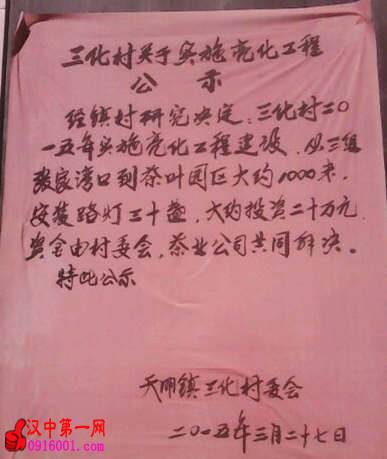 三化村关于实施亮化工程
公示
经镇村研究决定：三化村二〇
一五年实施亮化工程建设，从三组
张家湾口到茶叶园区大约1000米，
安装路灯三十盏，大约投资二十万元
资金由村委会，茶业公司共同解决。
特此公示
天明镇三化村委会
二〇一五年三月二十七日
汉中第一网
0916001.com